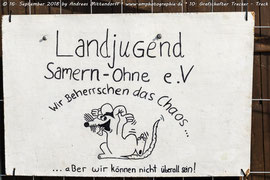 © 16. September 2018 by Andreas Mittendorff * www.amphotographie.de * 10. Grafschafter Trecker - Treck
Landjugend
Samern-Ohne e.V
Wir Beherrschen das Chaos...
...aBer wir können nicht überall sein!